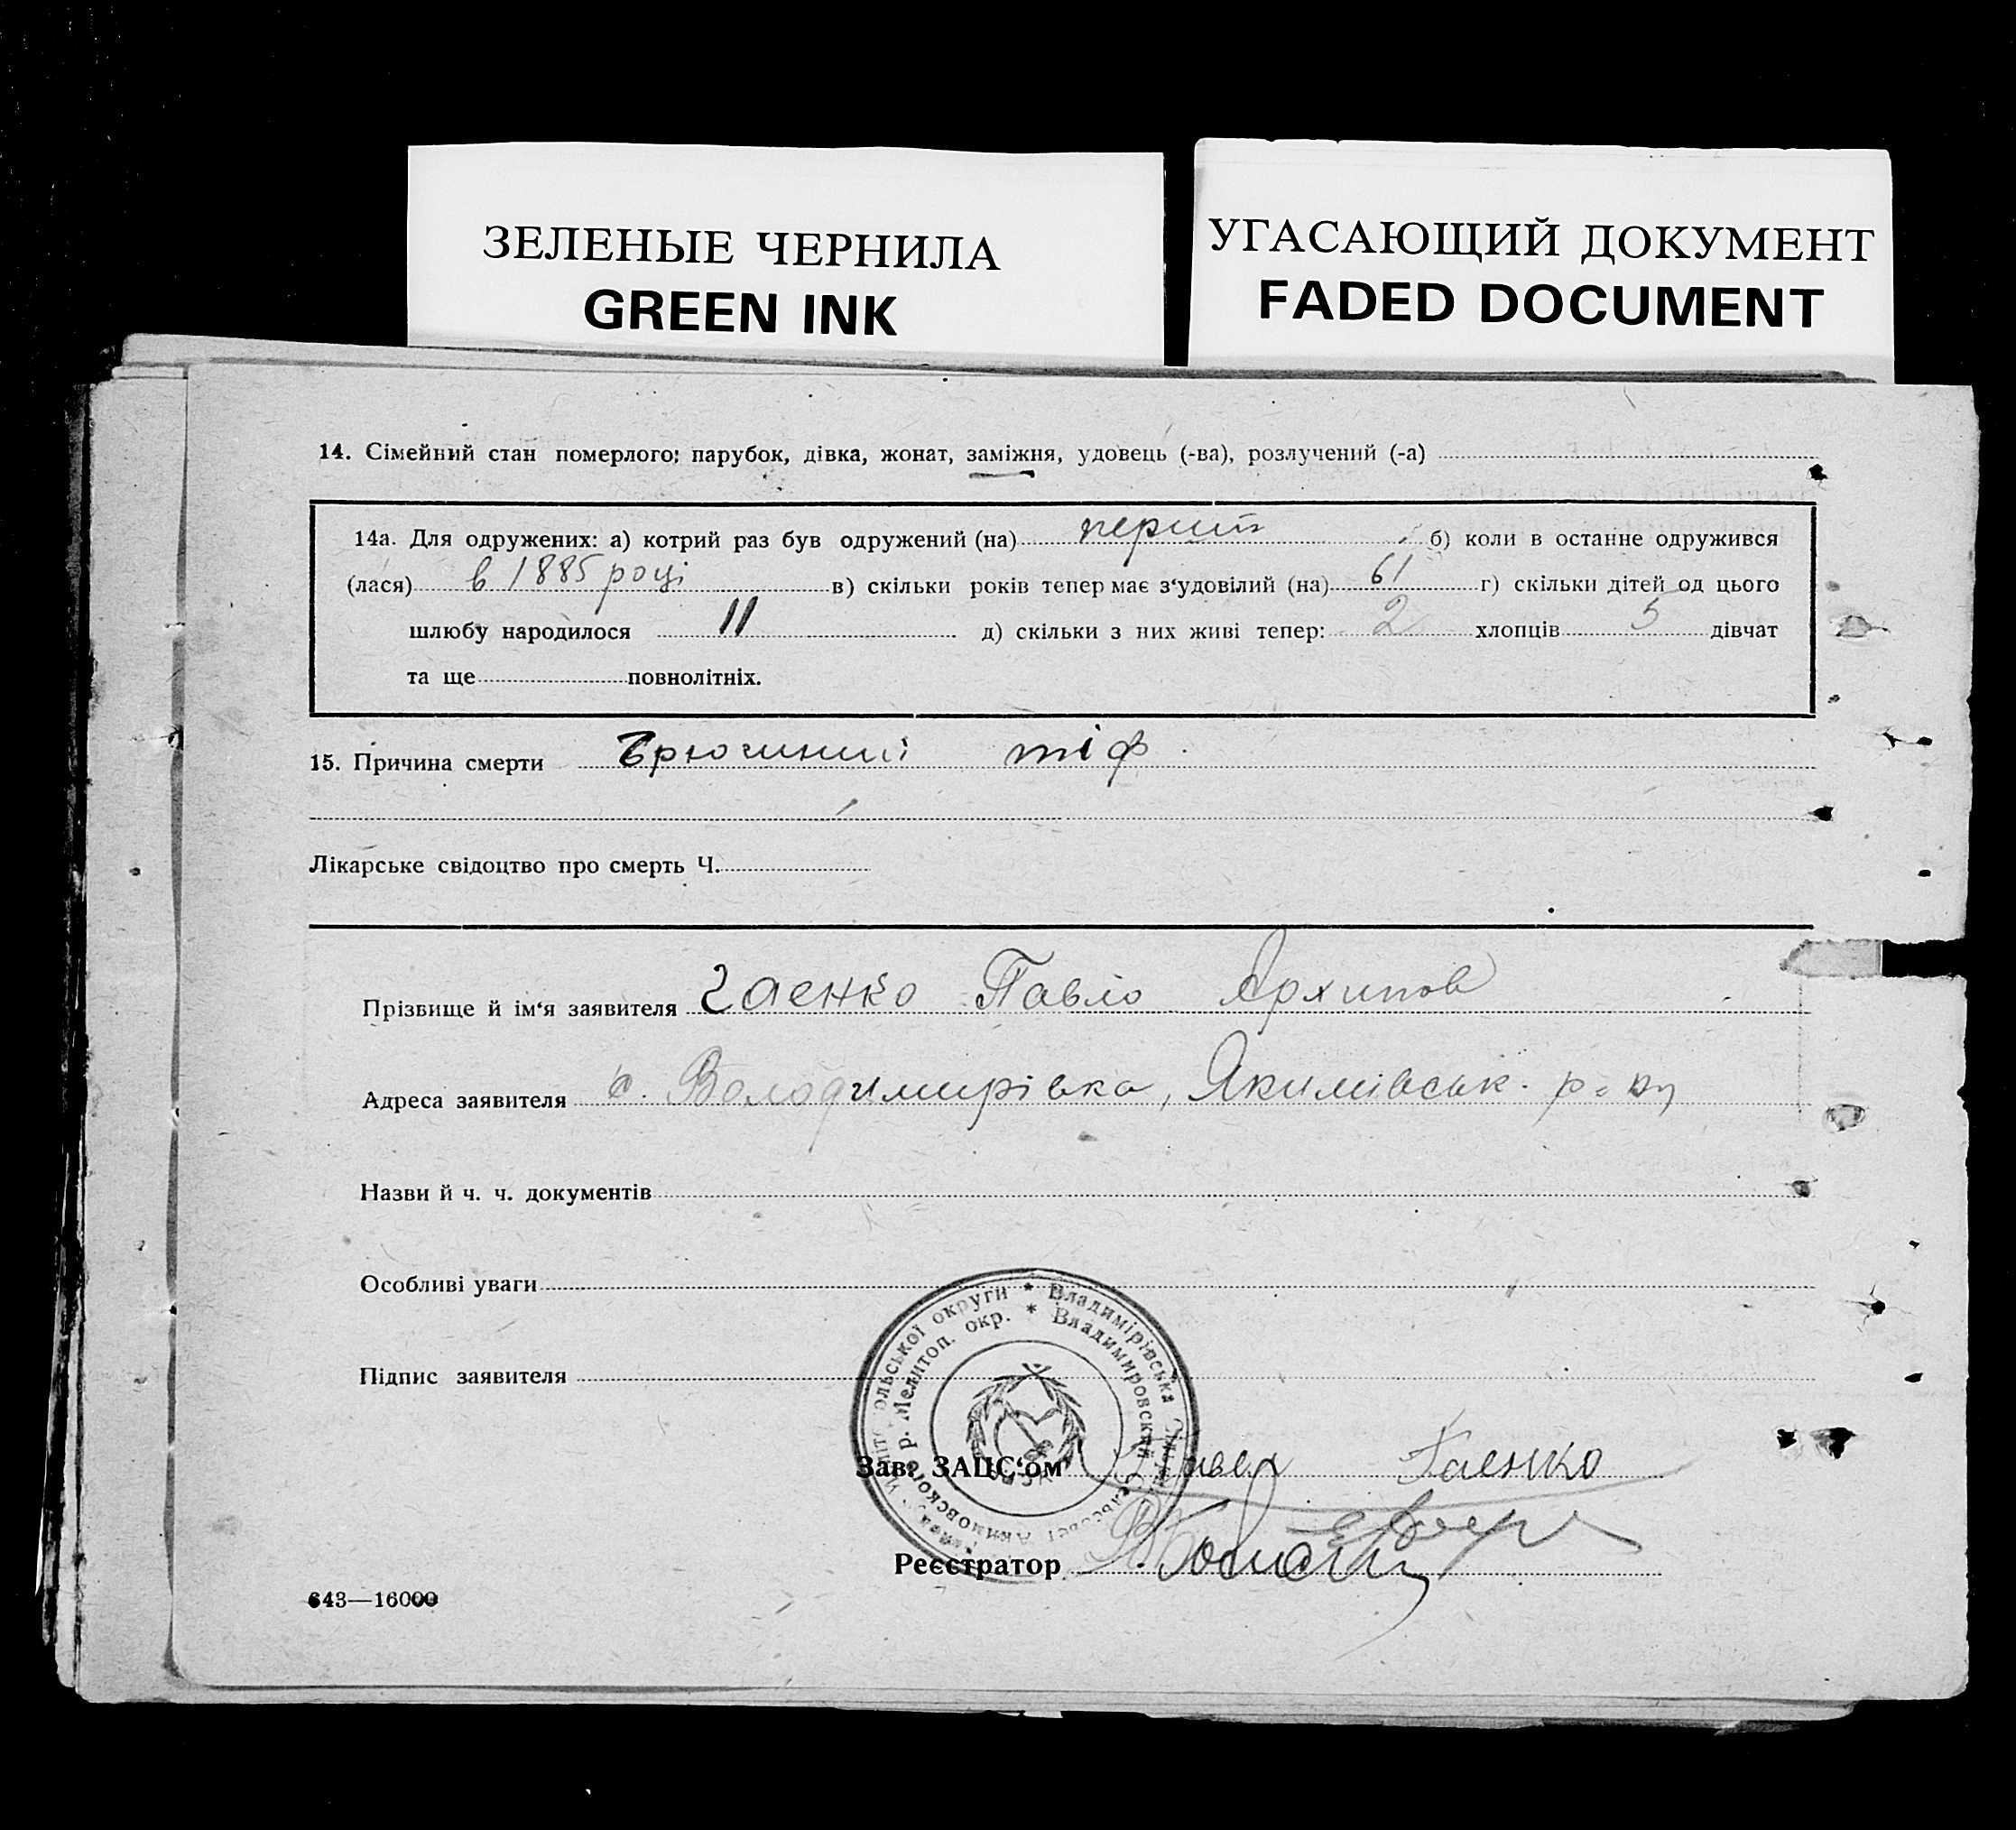 ЗЕЛЕНЫЕ ЧЕРНИЛА
GREEN INK
УГАСАЮЩИЙ ДОКУМЕНТ
FADED DOCUMENT
14. Сімейний стан померлого: парубок, дівка, жонат, заміжня, удовець (-ва), розлучений (-а)
14а. Для одружених: а) котрий раз був одружений (на) перший б) коли в останнє одружився
(лася) в 1885 році в) скільки років тепер має з‘удовілий (на) 61 г) скільки дітей од цього
шлюбу народилося 11 д) скільки з них живі тепер: 2 хлопців 5 дівчат
та ще повнолітніх.
15. Причина смерти Брюшний тіф.
Лікарське свідоцтво про смерть Ч.
Прізвище й ім‘я заявителя Гаєнко Павло Архипов
Адреса заявителя с. Володимирівка, Якимівськ. р-ну
Назви й ч. ч. документів
Особливі уваги
Підпис заявителя
ольської округи * Владимірівська
р. Мелитоп. окр. * Владимировский сельсовет Акимовского
Зав. ЗАЦС‘ом Гаенко
Реєстратор
643—16000